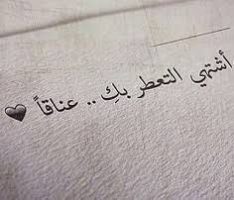 أشتهي التعطر بكِ .. عناقاً ♥